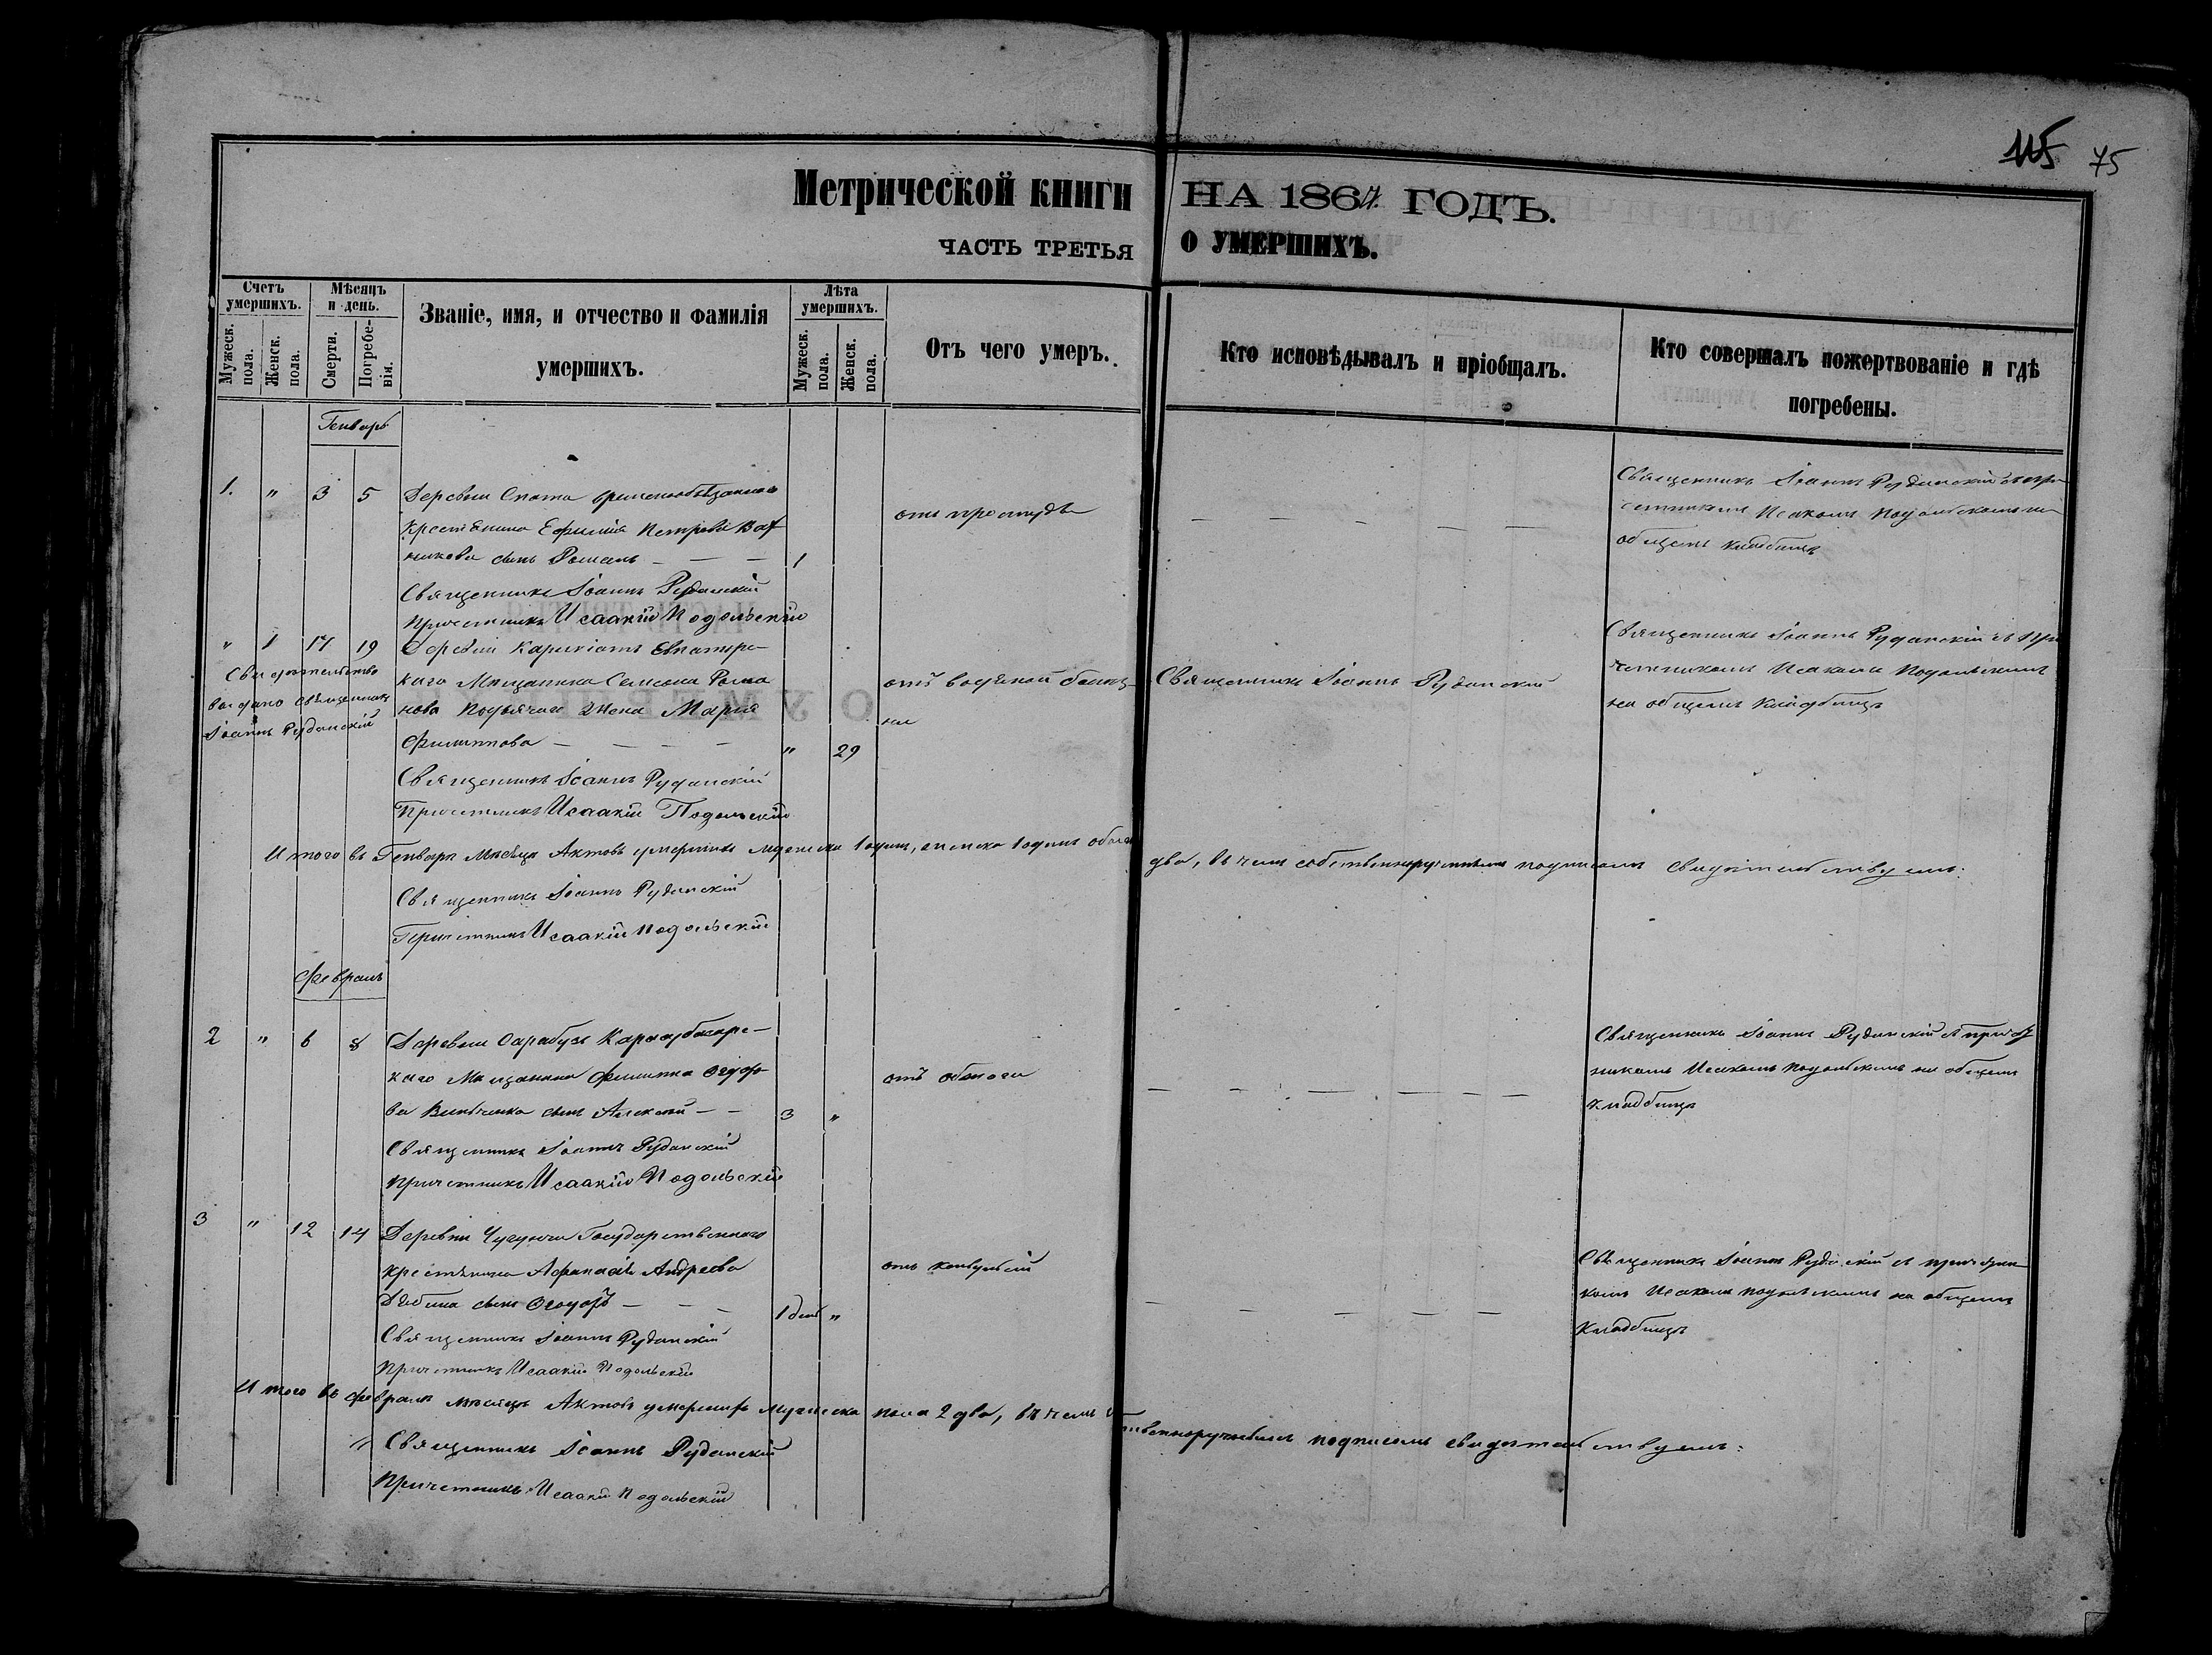 115 75
Метрической книги НА 1864 ГОДЪ.
ЧАСТЬ ТРЕТЬЯ О УМЕРШИХЪ.
Счетъ умершихъ.
Мужеск. пола.
Женск. пола.
Мѣсяцъ и день.
Смерти.
Погребенія.
Званіе, имя, и отчество и фамилія
умершихъ.
Лѣта умершихъ.
Мужеск. пола.
Женск. пола.
Отъ чего умеръ.
Кто исповѣдывалъ и пріобщалъ.
Кто совершалъ пожертвованіе и гдѣ
погребены.
Генварь
1. " 3 5 Деревни временнообязаннаго
крестьянина Ефимія Петрова
сынъ Романъ — — 1
отъ простуды
Священникъ Іоаннъ Руданскій
Исакомъ Подольскимъ на
общемъ кладбищѣ
Священникъ Іоаннъ Руданскій
Причетникъ Исаакій Подольскій
" 1 17 19 Деревни Евпаторій-
скаго Мѣщанина Самсона Рома
нова Подъячаго Жена Марія
Филиппова — — — — " 29
отъ водяной болѣз
ни
Священникъ Іоаннъ Руданскій
Священникъ Іоаннъ Руданскій съ При
четникомъ Исакомъ Подольскимъ
на общемъ кладбищѣ
Свидѣтельство
выдано священникъ
Іоаннъ Руданскій
Священникъ Іоаннъ Руданскій
Причетникъ Исаакій Подольскій
Итого въ Генварѣ Мѣсяцѣ Актовъ умершихъ мужеска 1 одинъ, женска 1 одинъ обоего два, въ чемъ собственноручнымъ подписомъ свидѣтельствуемъ:
Священникъ Іоаннъ Руданскій
Причетникъ Исаакій Подольскій
Февраль
2 " 6 8 Деревни Сарабузъ Карасубазарс-
каго Мѣщанина Филиппа Ѳеодоро
ва сынъ Алексѣй — — 3 "
Священникъ Іоаннъ Руданскій съ причет
никомъ Исакомъ Подольскимъ на общемъ
кладбищѣ
Священникъ Іоаннъ Руданскій
Причетникъ Исаакій Подольскій
3 " 12 14 Деревни Государственнаго
крестьянина Афанасія Андреева
сынъ Ѳеодоръ — — — 1 день "
отъ конвульсій
Священникъ Іоаннъ Руданскій съ причетни
комъ Исакомъ Подольскимъ на общемъ
кладбищѣ
Священникъ Іоаннъ Руданскій
Причетникъ Исаакій Подольскій
Итого въ Февралѣ мѣсяцѣ Актовъ умершихъ мужеска пола 2 два, въ чемъ собственноручнымъ подписомъ свидѣтельствуемъ:
Священникъ Іоаннъ Руданскій
Причетникъ Исаакій Подольскій